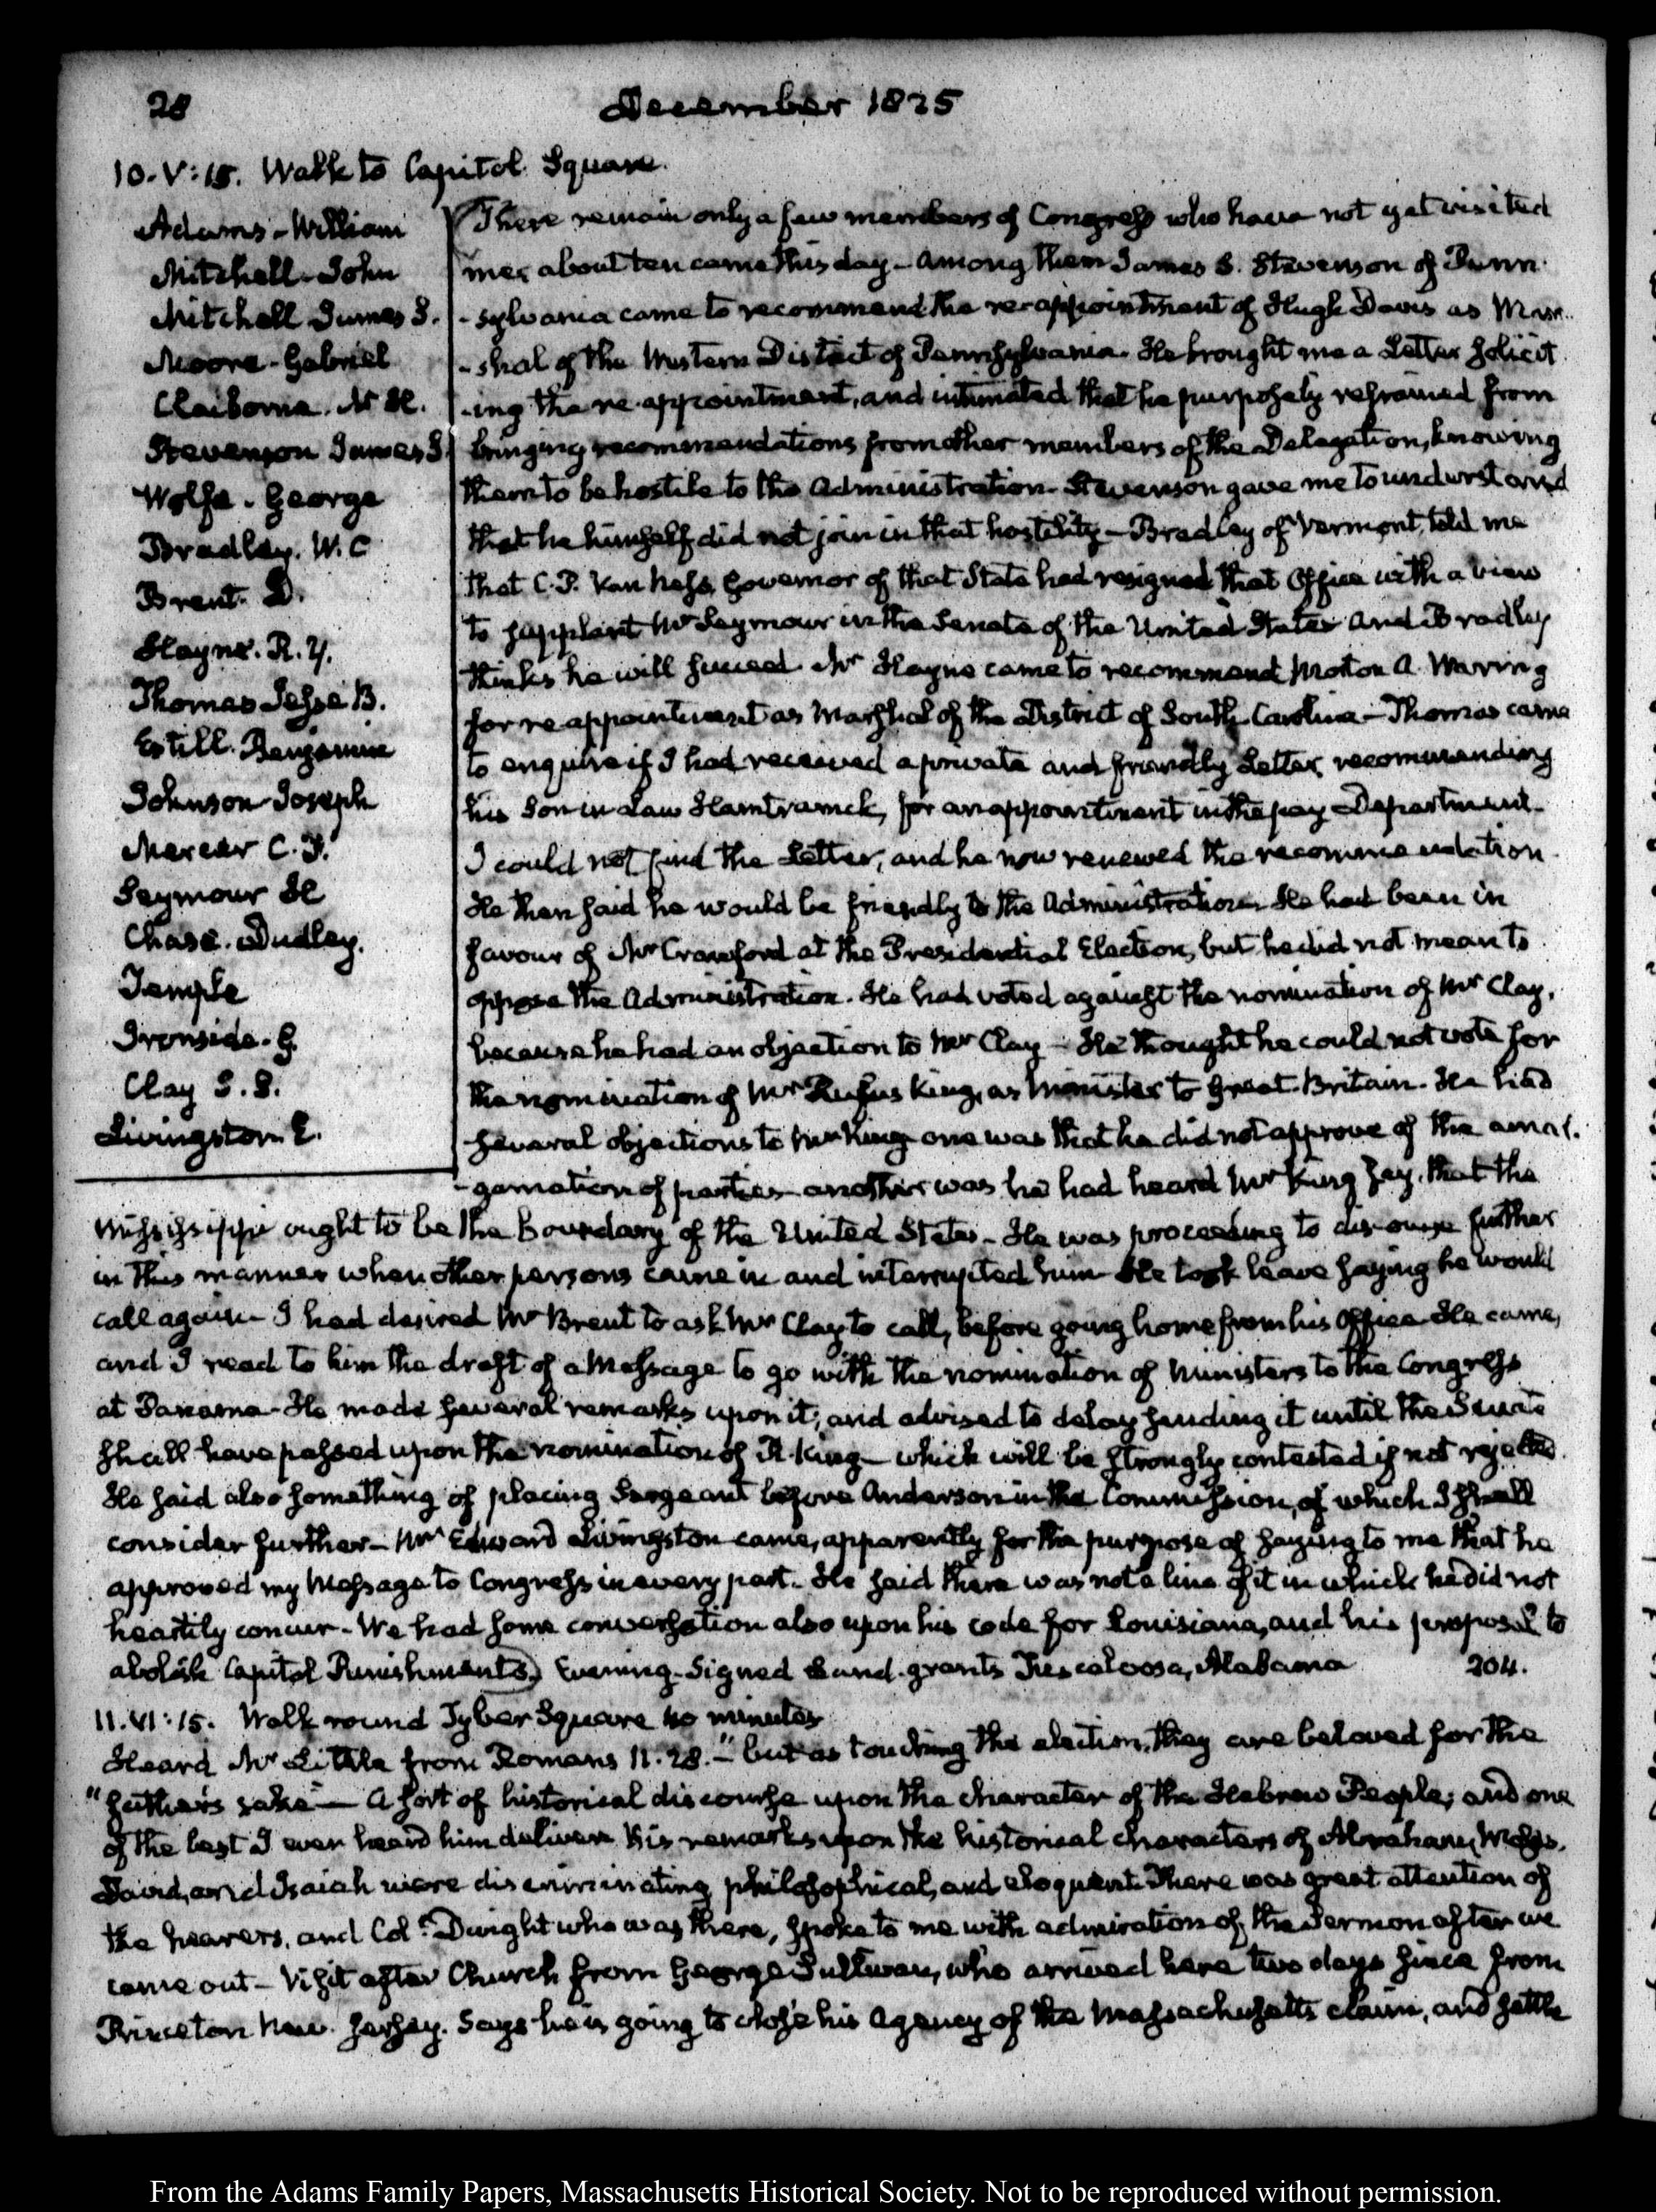 28
December 1825
10. V:15. Walk to Capitol Square.
Adams - William
Mitchell - John
Mitchell James S.
Moore - Gabriel
Claiborne. N. H.
Stevenson James S.
Wolfe - George
Bradley. W. C
Brent. D.
Hayne. R. Y.
Thomas Jesse B.
Estill. Benjamin
Johnson Joseph
Mercer C. F.
Seymour H
Chase. Dudley.
Temple
Ironside. G.
Clay
Livingston E.
There remain only a few members of Congress who have not yet visited
me; about ten came this day - Among them James S. Stevenson of Penn-
-sylvania came to recommend the re-appointment of Hugh Davis as Mar-
-shal of the Western District of Pennsylvania. He brought me a Letter solicit
-ing the re-appointment, and intimated that he purposely refrained from
bringing recommendations from other members of the Delegation, knowing
them to be hostile to the Administration - Stevenson gave me to understand
that he himself did not join in that hostility - Bradley of Vermont, told me
that C. P. Van Ness, Governor of that State had resigned that Office with a view
to supplant Mr Seymour in the Senate of the United States and Bradley
thinks he will succeed. Mr Hayne came to recommend Morton A. Waring
for re appointment as Marshal of the District of South Carolina - Thomas came
to enquire if I had received a private and friendly Letter, recommending
his Son in Law Hamtramck, for an appointment in the pay Department.
I could not find the Letter, and he now renewed the recommendation.
He then said he would be friendly to the Administration. He had been in
favour of Mr Crawford at the Presidential Election, but he did not mean to
oppose the Administration. He had voted against the nomination of Mr Clay,
because he had an objection to Mr Clay - He thought he could not vote for
the nomination of Mr Rufus King, as Minister to Great-Britain. He had
several objections to Mr King one was that he did not approve of the amal-
-gamation of parties - another was he had heard Mr King say, that the
Mississippi ought to be the Boundary of the United States - He was proceeding to discourse further
in this manner when other persons came in and interrupted him - He took leave saying he would
call again - I had desired Mr Brent to ask Mr Clay to call, before going home from his Office. He came,
and I read to him the draft of a Message to go with the nomination of Ministers to the Congress
at Panama - He made several remarks upon it, and advised to delay sending it until the Senate
shall have passed upon the nomination of R. King - which will be strongly contested if not rejected.
He said also something of placing Sergeant before Anderson in the Commission, of which I shall
consider further - Mr Edward Livingston came, apparently for the purpose of saying to me that he
approved my Message to Congress in every part. He said there was not a line of it in which he did not
heartily concur - We had some conversation also upon his code for Louisiana, and his proposal to
abolish Capital Punishments. Evening - Signed Land-grants Tuscaloosa, Alabama 204.
11. VI:15. Walk round Tyber Square 40 minutes
Heard Mr Little from Romans 11. 28. "but as touching the election, they are beloved for the
"father's sake - A sort of historical discourse upon the character of the Hebrew People; and one
of the best I ever heard him deliver. His remarks upon the historical characters of Abraham, Moses,
David, and Isaiah were discriminating, philosophical, and eloquent. There was great attention of
the hearers, and Col. Dwight who was there, spoke to me with admiration of the Sermon after we
came out - Visit after Church from George Sullivan, who arrived here two days since from
Princeton New-Jersey. Says he is going to close his Agency of the Massachusetts claim, and settle
From the Adams Family Papers, Massachusetts Historical Society. Not to be reproduced without permission.